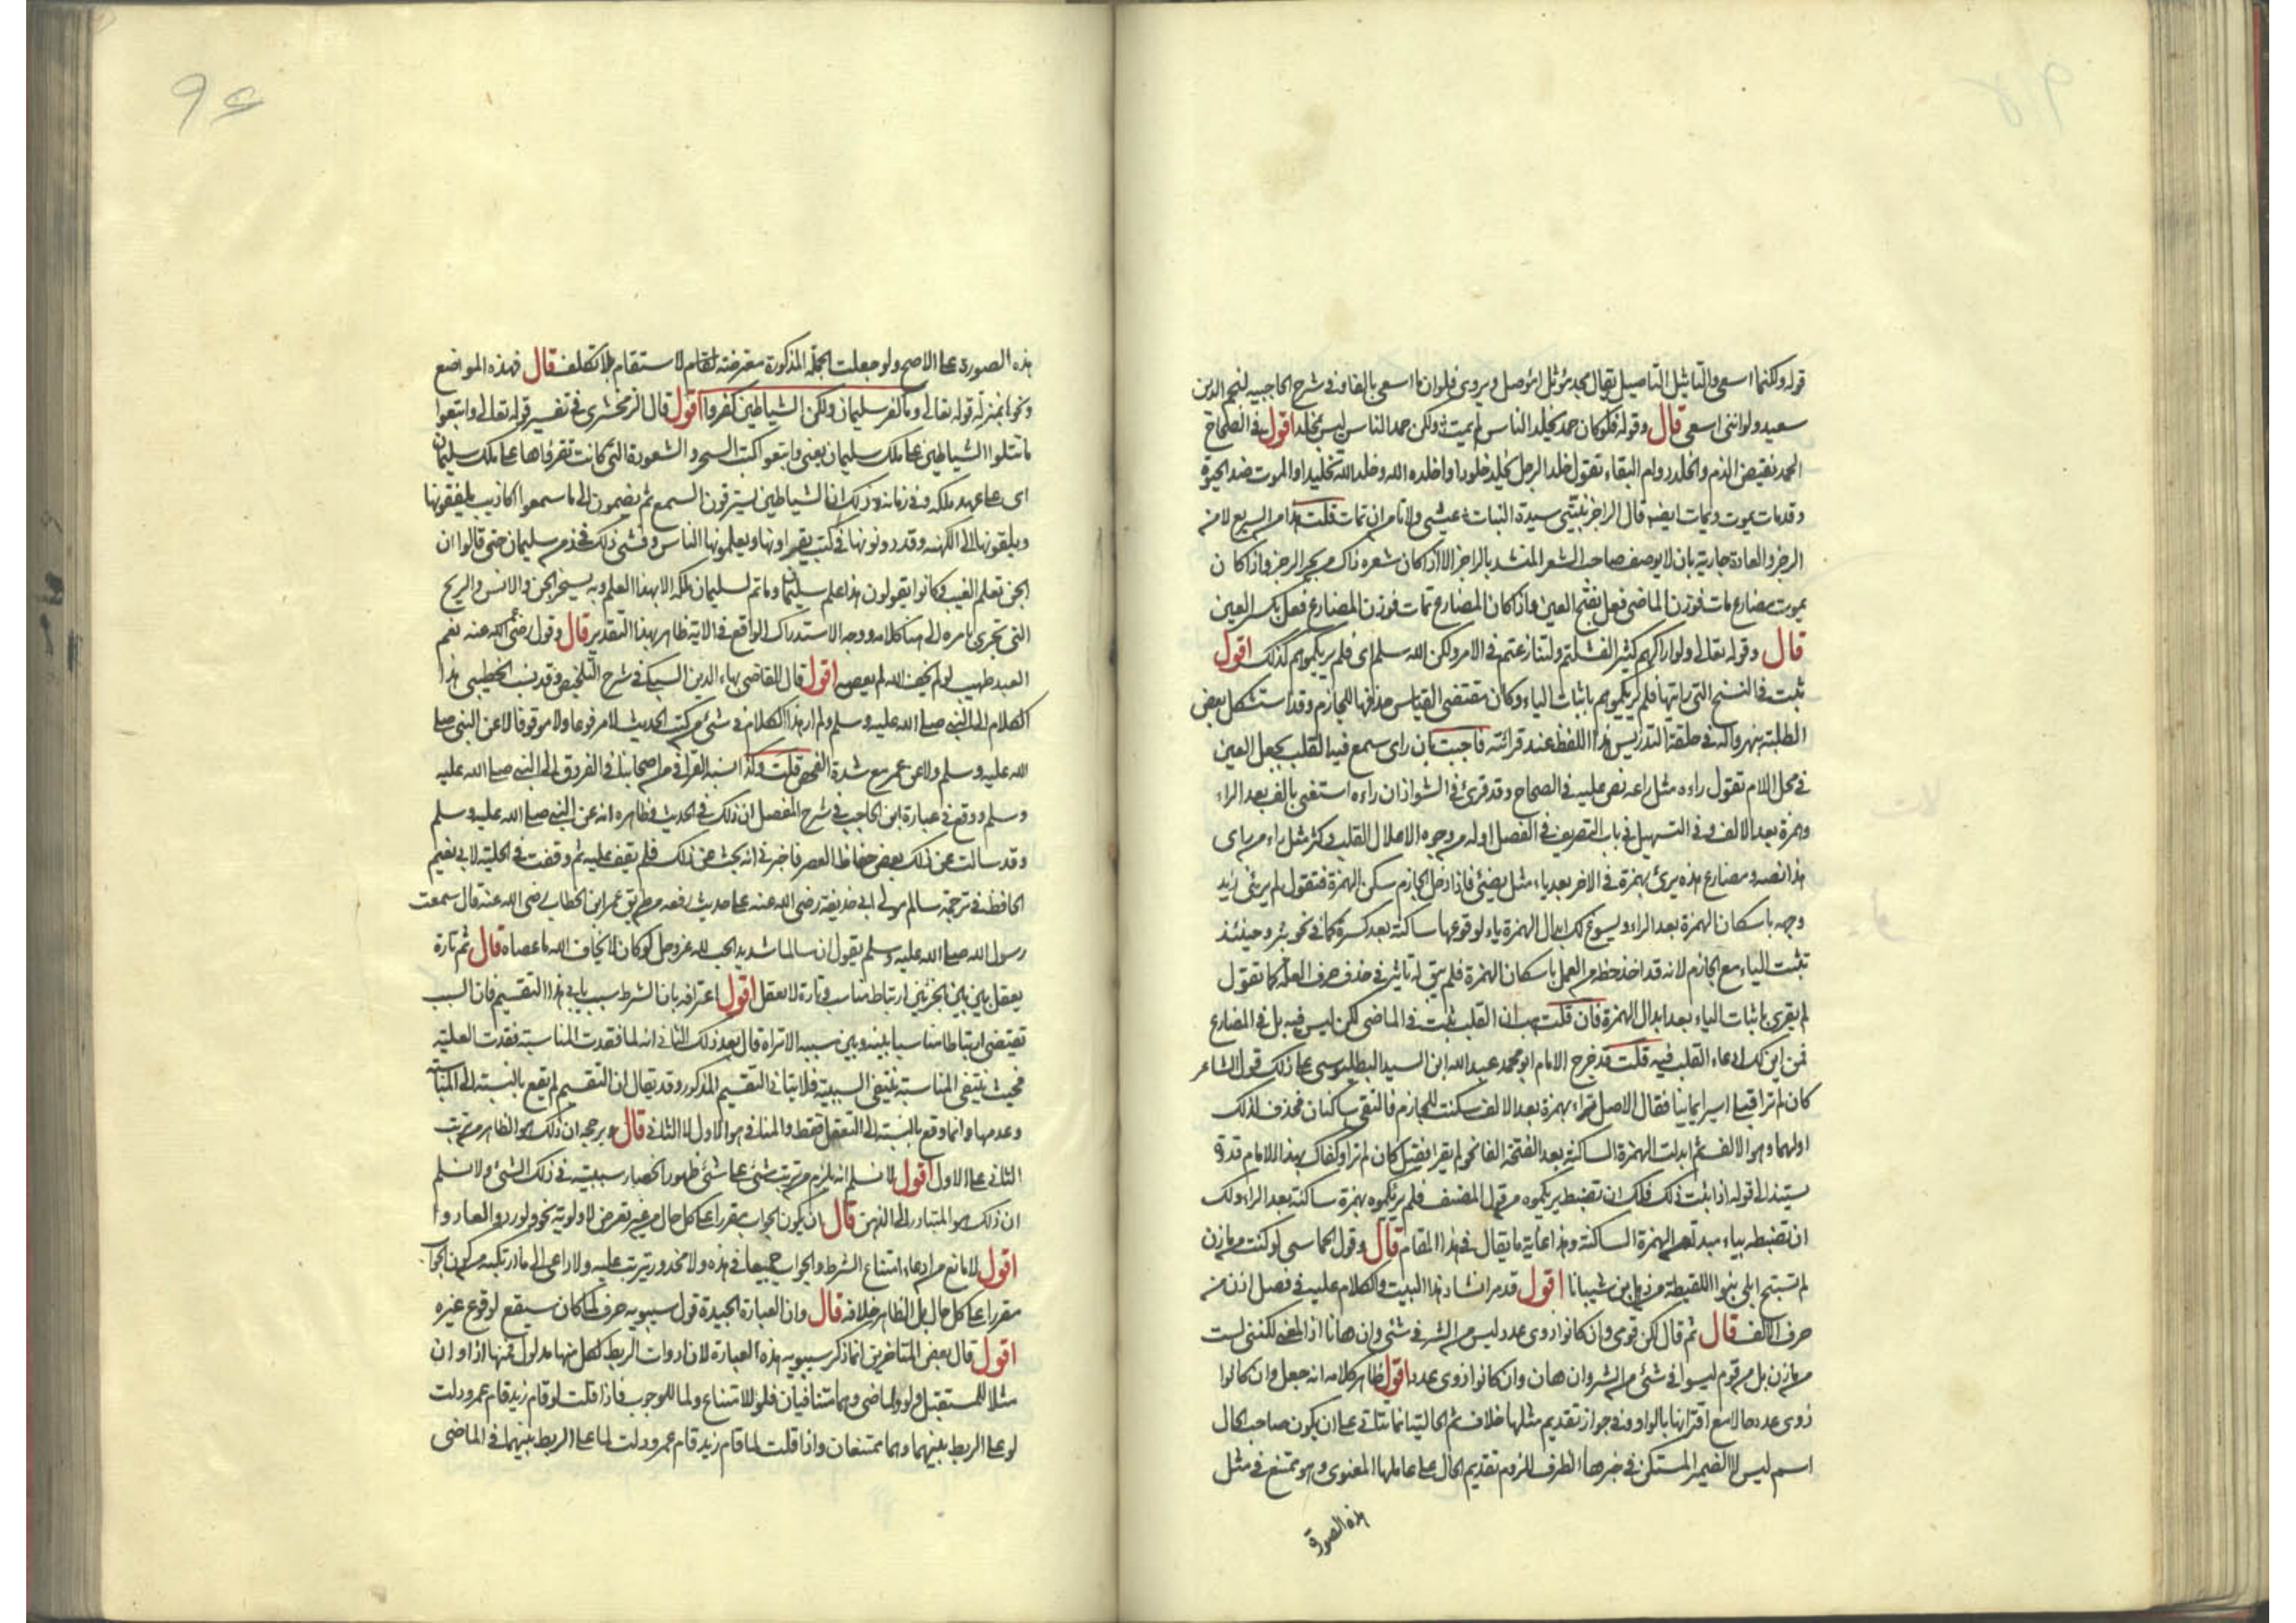 قوله ولكنما اسعى والتأثيل التاصيل يقال مجد مؤثل اى مؤصل ويروى فلو ان ما اسعى بالفاء وفى شرح الحاجبيه لنجم الدين
سعيد ولو اننى اسعى قال وقوله فلو كان حمد يخلد الناس لم يمت ولكن حمد الناس ليس بمخلد اقول فى الصحاح
الحمد نقيض الذم والخلد دوام البقاء تقول خلد الرجل يخلد خلودا واخلده الله وخلده الله تخليدا والموت ضد الحيوة
وقد مات يموت ويمات ايضا قال الراجز بنيتى سيدة البنات عيشى ولا نامن ان تمات قلت هذا من السريع لا من
الرجز والعادة جارية بان لا يوصف صاحب الشعر المنشد بالراجز الا اذا كان شعره ذاك من بحر الرجز واذا كان
يموت مضارع مات فوزن الماضى فعل بفتح العين واذا كان المضارع تمات فوزن المضارع فعل بكسر العين
قال وقوله تعالى ولو اراكهم كثيرا لفشلتم ولتنازعتم فى الامر ولكن الله سلم اى فلم يريكموهم كذلك اقول
ثبت فى النسخ التى رايتها فلم يريكموهم باثبات الياء وكان مقتضى القياس حذفها للجازم وقد استشكل بعض
الطلبة بنهرواله فى حلقة التدريس هذا اللفظ عند قرائته فاجبت بان راى سمع فيه القلب بجعل العين
فى محل اللام تقول راءه مثل راعه نص عليه فى الصحاح وقد قرئ فى الشواذ ان راءه استغنى بالف بعد الراء
وهمزة بعد الالف وفى التسهيل فى باب التصريف فى الفصل اوله من وجوه الاعلال القلب وكثر مثل راء من راى
هذا نصه ومضارع هذه يرئ بهمزة فى الاخر بعد ياء مثل يضئ فاذا دخل الجازم سكن الهمزة فتقول لم يرئ زيد
وجهه باسكان الهمزة بعد الراء ويسوغ لك ابدال الهمزة ياء لوقوعها ساكنة بعد كسرة كما فى نحو بئر وحينئذ
تثبت الياء مع الجازم لانه قد اخذ حظه من العمل باسكان الهمزة فلم يبق له تاثير فى حذف حرف العلة كما تقول
لم يقرى باثبات الياء بعد ابدال الهمزة فان قلت هب ان القلب ثبت فى الماضى لكن ليس فيه بل فى المضارع
فمن اين لك ادعاء القلب فيه قلت قد خرج الامام ابو محمد عبد الله ابن السيد البطليوسى على ذلك قول الشاعر
كان لم ترا قبلى اسيرا يمانيا فقال الاصل تراء بهمزة بعد الالف سكنت للجازم فالتقى ساكنان فحذف لذلك
اولهما وهو الالف ثم ابدلت الهمزة الساكنة بعد الفتحة الفا نحو لم يقرا فقيل كان لم ترا وكفاك بهذا الامام قدوة
يستند الى قوله اذا ثبت ذلك فلك ان تضبط يريكموه من قول المصنف فلم يرئكموه بهمزة ساكنة بعد الراء ولك
ان تضبطه بياء مبدلة من الهمزة الساكنة وهذا غاية ما يقال فى هذا المقام قال وقول الحماسى لو كنت من مازن
لم تستبح ابلى بنوا اللقيطة من ذهل بن شيبانا اقول قد مر انشاد هذا البيت والكلام عليه فى فصل اذن من
حرف الالف قال ثم قال لكن قومى وان كانوا ذوى عدد ليسوا من الشر فى شئ وان هانا اذ المعنى لكننى لست
من مازن بل من قوم ليسوا فى شئ من الشر وان هان وان كانوا ذوى عدد اقول ظاهر كلامه انه جعل وان كانوا
ذوى عدد حالا مع اقترانها بالواو وفى جواز تقديم مثلها خلاف ثم الحالية انما تتاتى على ان يكون صاحب الحال
اسم ليس لا الضمير المستكن فى خبرها الظرف للزوم تقديم الحال على عاملها المعنوى وهو ممتنع فى مثل
هذه الصورة
96
هذه الصورة على الاصح ولو جعلت الجملة المذكورة معترضة لاستقام بلا تكلف قال فهذه المواضع
ونحوها بمنزلة قوله تعالى وما كفر سليمان ولكن الشياطين كفروا اقول قال الزمخشرى فى تفسير قوله تعالى واتبعوا
ما تتلوا الشياطين على ملك سليمان يعنى واتبعوا كتب السحر والشعوذة التى كانت تقرؤها على ملك سليمان
اى على عهد ملكه وفى زمانه وذلك ان الشياطين يسترقون السمع ثم يضمون الى ما سمعوا اكاذيب يلفقونها
ويلقونها الى الكهنه وقد دونوها فى كتب يقرؤنها ويعلمونها الناس وفشى ذلك فى زمن سليمان حتى قالوا ان
الجن تعلم الغيب وكانوا يقولون هذا علم سليمان وما تم لسليمان ملكه الا بهذا العلم وبه يسخر الجن والانس والريح
التى تجرى بامره الى هنا كلامه ووجه الاستدراك الواقع فى الاية ظاهر بهذا التقدير قال وقول رضى الله عنه نعم
العبد صهيب لو لم يخف الله لم يعصه اقول قال القاضى بهاء الدين السبكى فى شرح التلخيص وقد نسب الخطيبى هذا
الكلام الى النبى صلى الله عليه وسلم ولم ار هذا الكلام فى شئ من كتب الحديث لا مرفوعا ولا موقوفا لا عن النبى صلى
الله عليه وسلم ولا عن عمر مع شدة الفحص قلت وكذا نسبه القرافى من اصحابنا فى الفروق الى النبى صلى الله عليه
وسلم ووقع فى عبارة ابن الحاجب فى شرح المفصل ان ذلك فى الحديث فظاهره انه عن النبى صلى الله عليه وسلم
وقد سالت عن ذلك بعض حفاظ العصر فاخبرنى انه بحث عن ذلك فلم يقف عليه ثم وقفت فى الحلية لابى نعيم
الحافظ فى ترجمة سالم مولى ابى حذيفة رضى الله عنه على حديث رفعه من طريق عمر ابن الخطاب رضى الله عنه قال سمعت
رسول الله صلى الله عليه وسلم يقول ان سالما شديد الحب لله عز وجل لو كان لا يخاف الله ما عصاه قال ثم تارة
يعقل بين الجزئين ارتباط مناسب وتارة لا يعقل اقول اعترافه بان الشرط سبب يابى هذا التقسيم فان السبب
تقتضى ارتباطا مناسبا بينه وبين مسببه الا تراه قال بعد ذلك الثانى انه لما فقدت المناسبة فقدت العلية
فحيث تنتفى المناسبة تنتفى السببية فلا يتاتى التقسيم المذكور وقد يقال ان التقسيم لم يقع بالنسبة الى المناسبة
وعدمها وانما وقع بالنسبة الى التعقل فقط والمنافى هو الاول لا الثانى قال ويرجحه ان ذلك هو الظاهر من ترتب
الثانى على الاول اقول لا نسلم انه يلزم من ترتب شئ على شئ ظهور انحصار سببيته فى ذلك الشئ ولا نسلم
ان ذلك هو المتبادر الى الذهن قال ان يكون الجواب مقررا على كل حال من غير تعرض لاولوية نحو ولو ردوا لعادوا
اقول لا مانع من ادعاء امتناع الشرط والجواب جميعا فى هذه ولا محذور يترتب عليه ولا داعى الى ما ارتكبه من كون الجواب
مقررا على كل حال بل الظاهر خلافه قال وان العبارة الجيدة قول سيبويه حرف لما كان سيقع لوقوع غيره
اقول قال بعض المتاخرين انما ذكر سيبويه هذه العبارة لان ادوات الربط لكل منها مدلول فمنها اذا وان
مثلا للمستقبل ولو ولما للماضى وهما متنافيان فلو للامتناع ولما للوجوب فاذا قلت لو قام زيد قام عمرو دلت
لو على الربط بينهما وهما ممتنعان واذا قلت لما قام زيد قام عمرو دلت لما على الربط بينهما فى الماضى